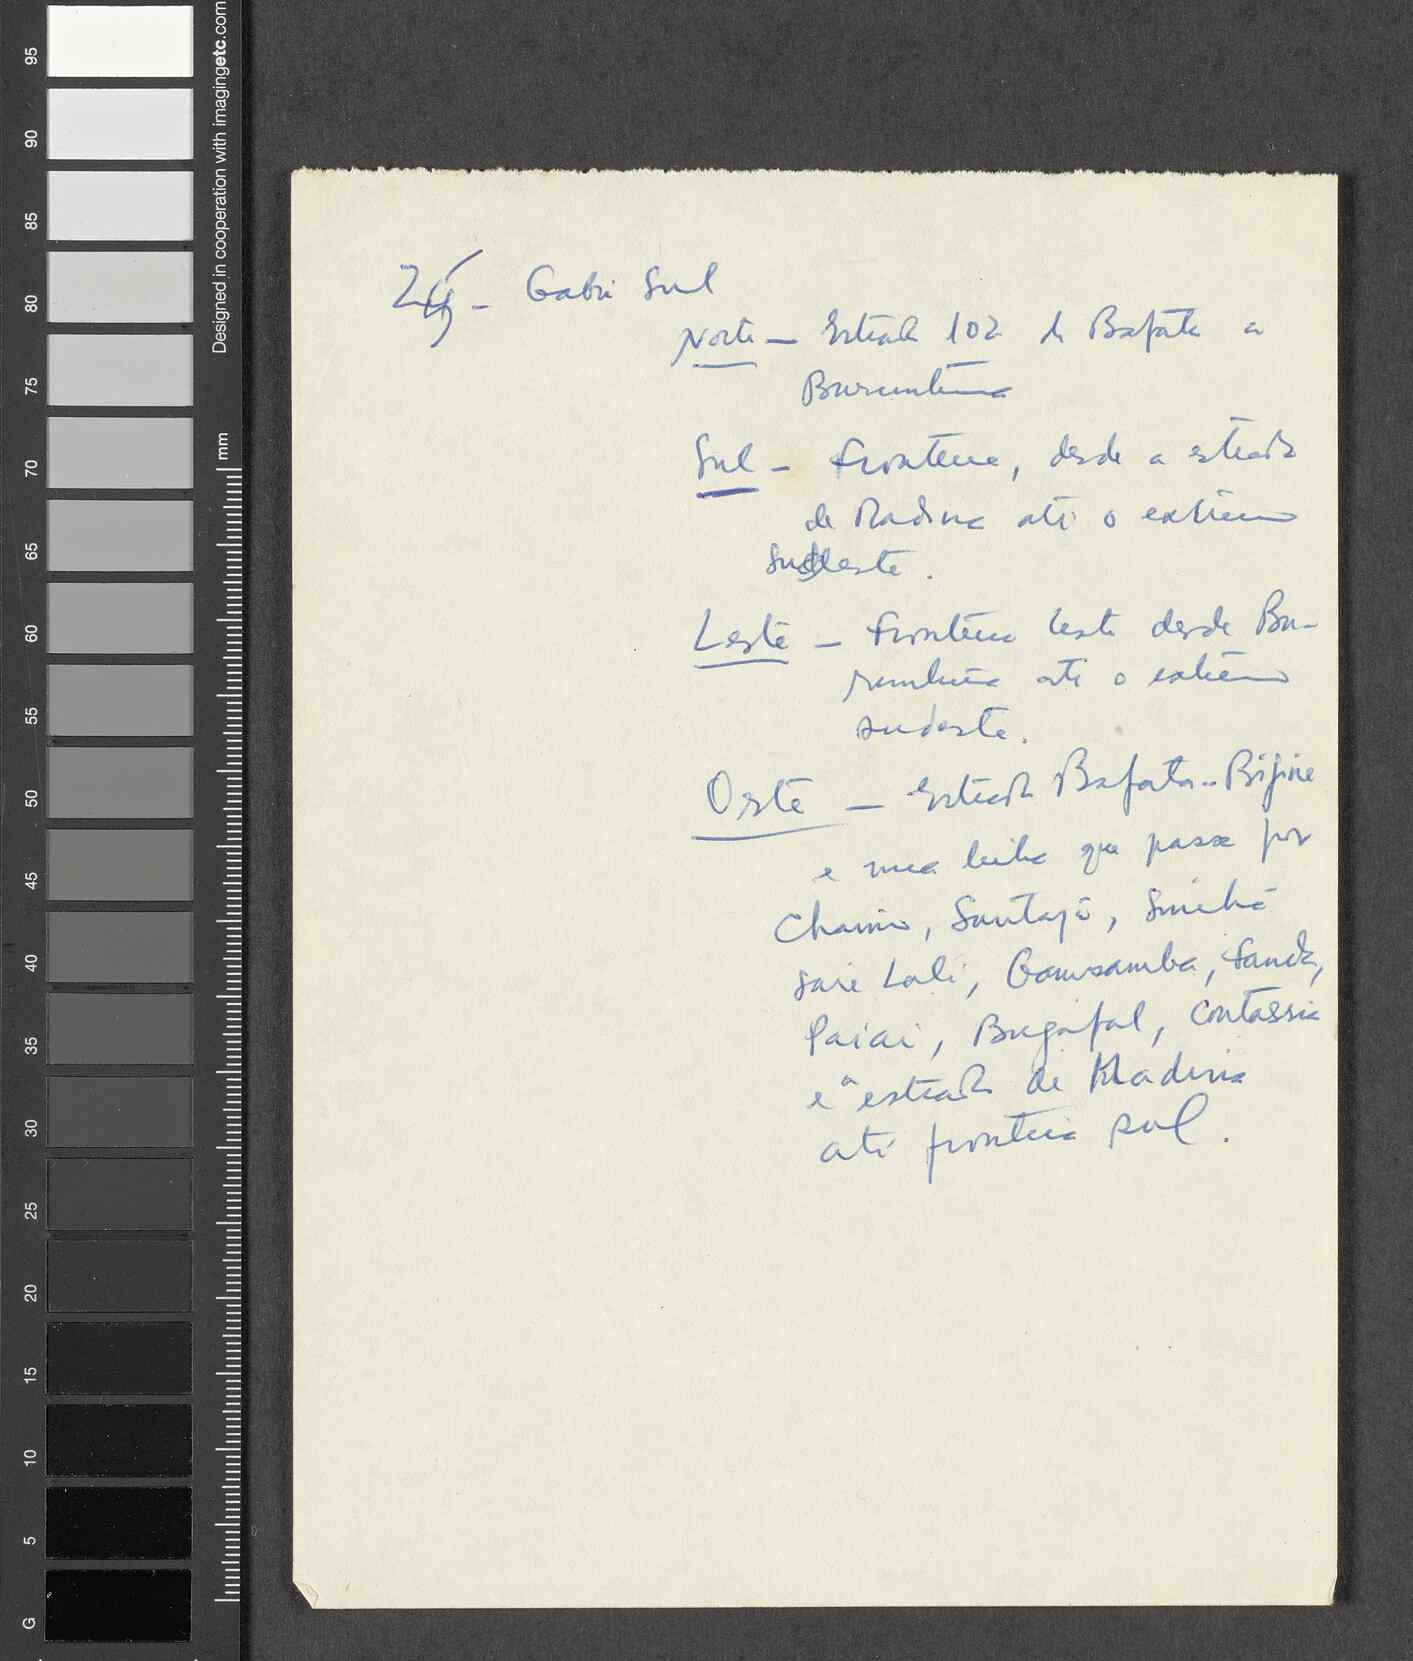 95
90
85
80
75
70
65
60
55
50
45
40
35
30
25
20
15
10
5
G
Designed in cooperation with imagingetc.com
mm
Gabú Sul
Norte — Estrada 102 de Bafatá a
Buruntuma
Sul — Fronteira, desde a estrada
de Madina até o extremo
Sudeste.
Leste — Fronteira leste desde Bu-
runtuma até o extremo
sudeste.
Oeste — Estrada Bafatá-Bijine
e uma linha que passa por
Chaim, Santajã,
Sare Lali, Gamsamba,
Paiai, Bugafal, Contassia
e a estrada de Madina
até fronteira sul.